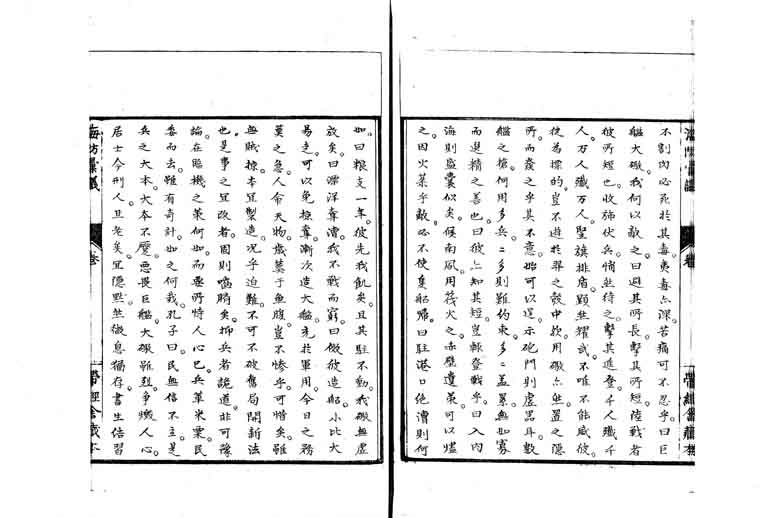 不割肉必死於其毒夷毒亦深苦痛可不忍乎曰巨
艦大礮我何以敵之曰避其所長擊其所短陸戰者
彼所短也收師伏兵悄然待之擊其進登千人殲千
人万人殲万人聖旗排眉顯然耀武不唯不能威彼
徒為標的豈不遊於羿之彀中歟用礮亦然置之隱
所而發之乎其不意始可以逞示砲門則虛累耳數
艦之槍何用多兵二多則難約束多亦蓋累無如寡
而選精之善也曰彼亦知其短豈輙登戰乎曰入內
海則盛囊似矣候南風用筏火之赤壁遺策可以燼
之因火菜乎敵必不使隻船歸曰駐港口絕漕則何
如曰粮支一年彼先我飢矣且其駐不動我礮無虛
放矣曰漂洋奪漕我不戰而窮曰倣彼造船小比大
易走可以免掠奪漸次造大艦充於軍用今日之務
莫之急人命天物歲葬于魚腹豈不慘乎可惜矣
無賊掠本宜製造況乎迫難不可不破舊局開新法
也是事之宜改者固則噬臍矣抑兵者詭道非可豫
論在臨機之策何如而要所恃人心已兵革米粟民
委而去雖有奇計如之何哉孔子曰民無信不立是
兵之大本大本不蹙惡畏巨艦大礮雖烈爭燬人心
居士今刑人且老矣宜隱默然微息猶存書生結習
海防彙議
卷
帶經舍藏本